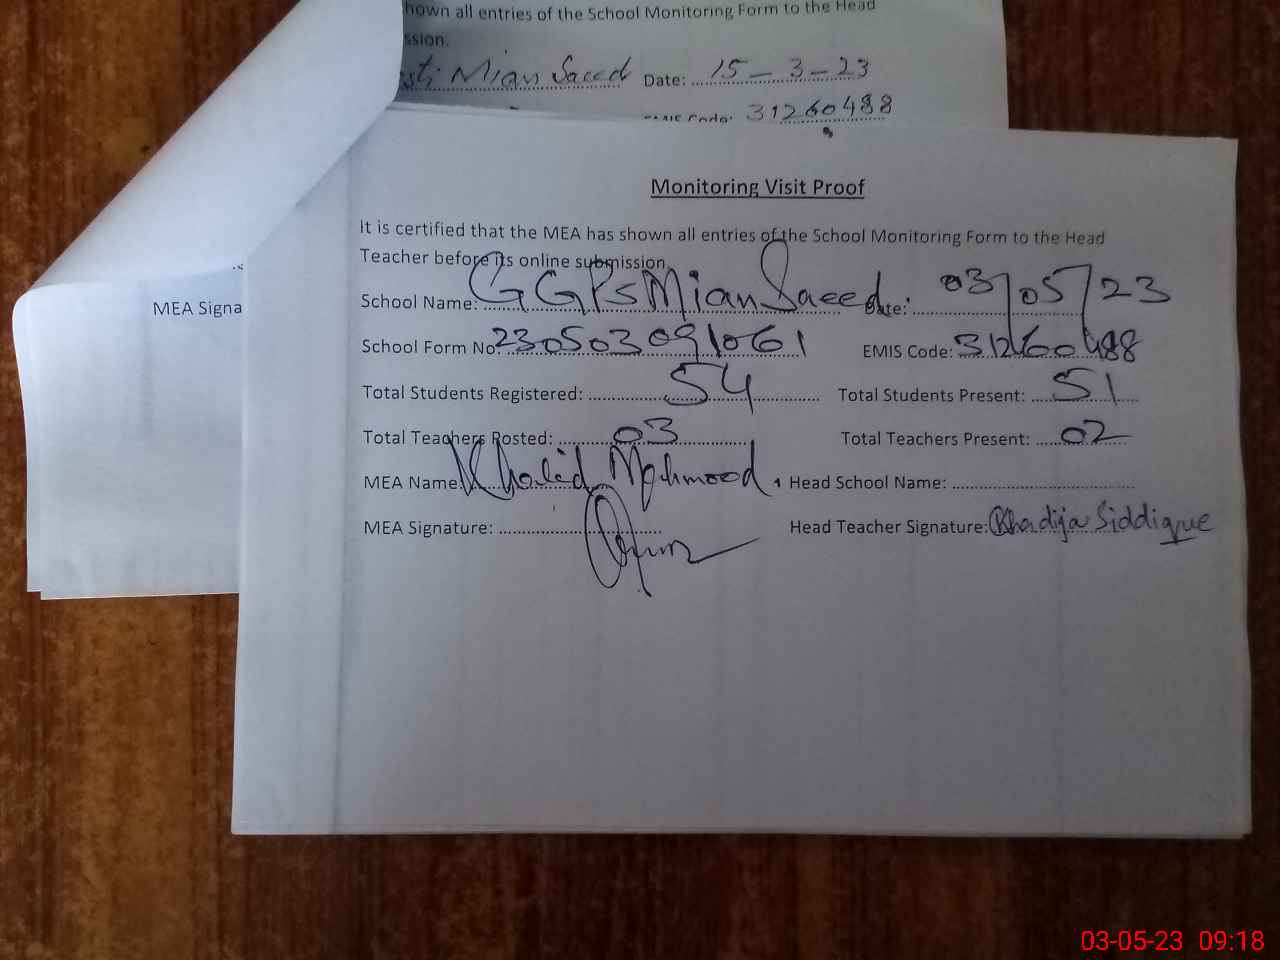 hown all entries of the School Monitoring Form to the Head
ssion.
Mian Saeed Date: 15-3-23
EMIS Code: 31260488
MEA Signa
Monitoring Visit Proof
It is certified that the MEA has shown all entries of the School Monitoring Form to the Head
Teacher before its online submission.
School Name: GGPS Mian Saeed Date: 03/05/23
School Form No. 230503091061 EMIS Code: 31260488
Total Students Registered: 54 Total Students Present: 51
Total Teachers Posted: 03 Total Teachers Present: 02
MEA Name: Khalid Mahmood. Head School Name:
MEA Signature: Head Teacher Signature: Khadija Siddique
03-05-23 09:18